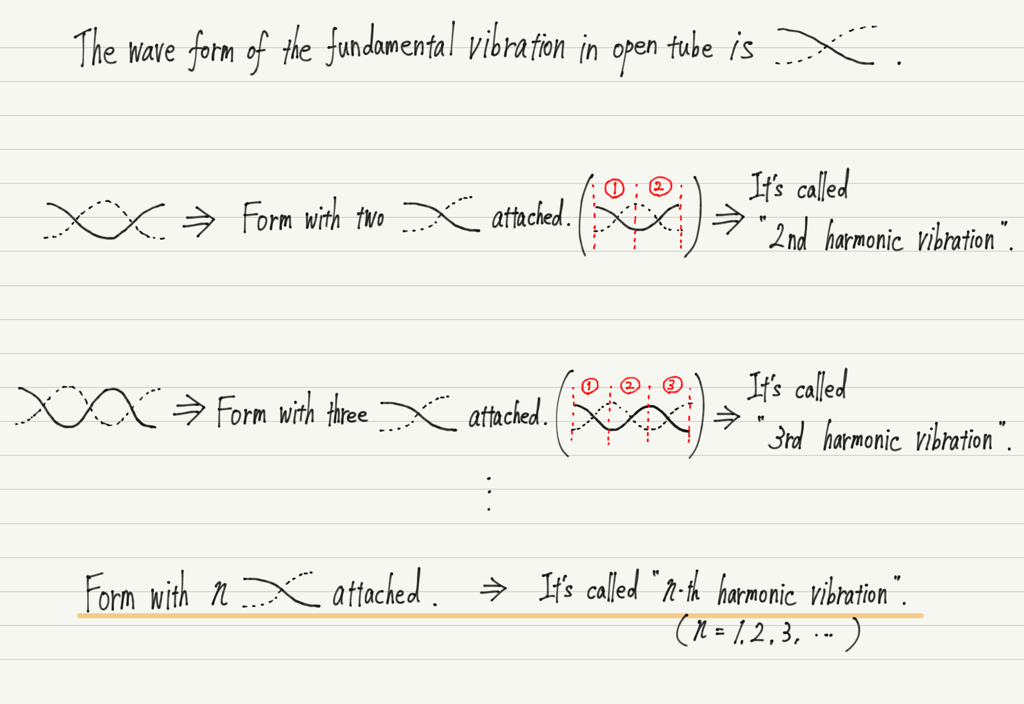 The wave form of the fundamental vibration in open tube is .
⇒ Form with two attached. ( ① ② ) ⇒ It's called
"2nd harmonic vibration".
⇒ Form with three attached. ( ① ② ③ ) ⇒ It's called
"3rd harmonic vibration".
⋮
Form with n attached. ⇒ It's called "n-th harmonic vibration".
(n = 1, 2, 3, ...)